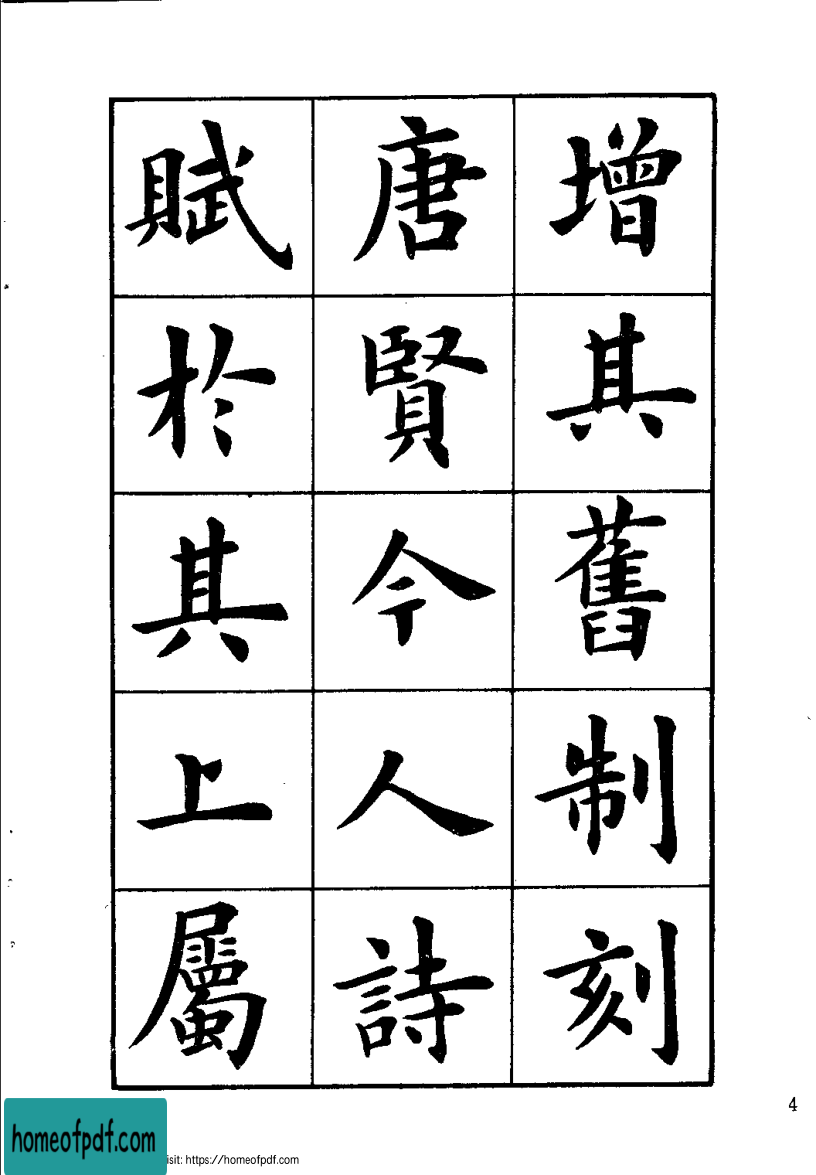 增其舊制刻
唐賢今人詩
賦於其上屬
4
homeofpdf.com
isit: https://homeofpdf.com